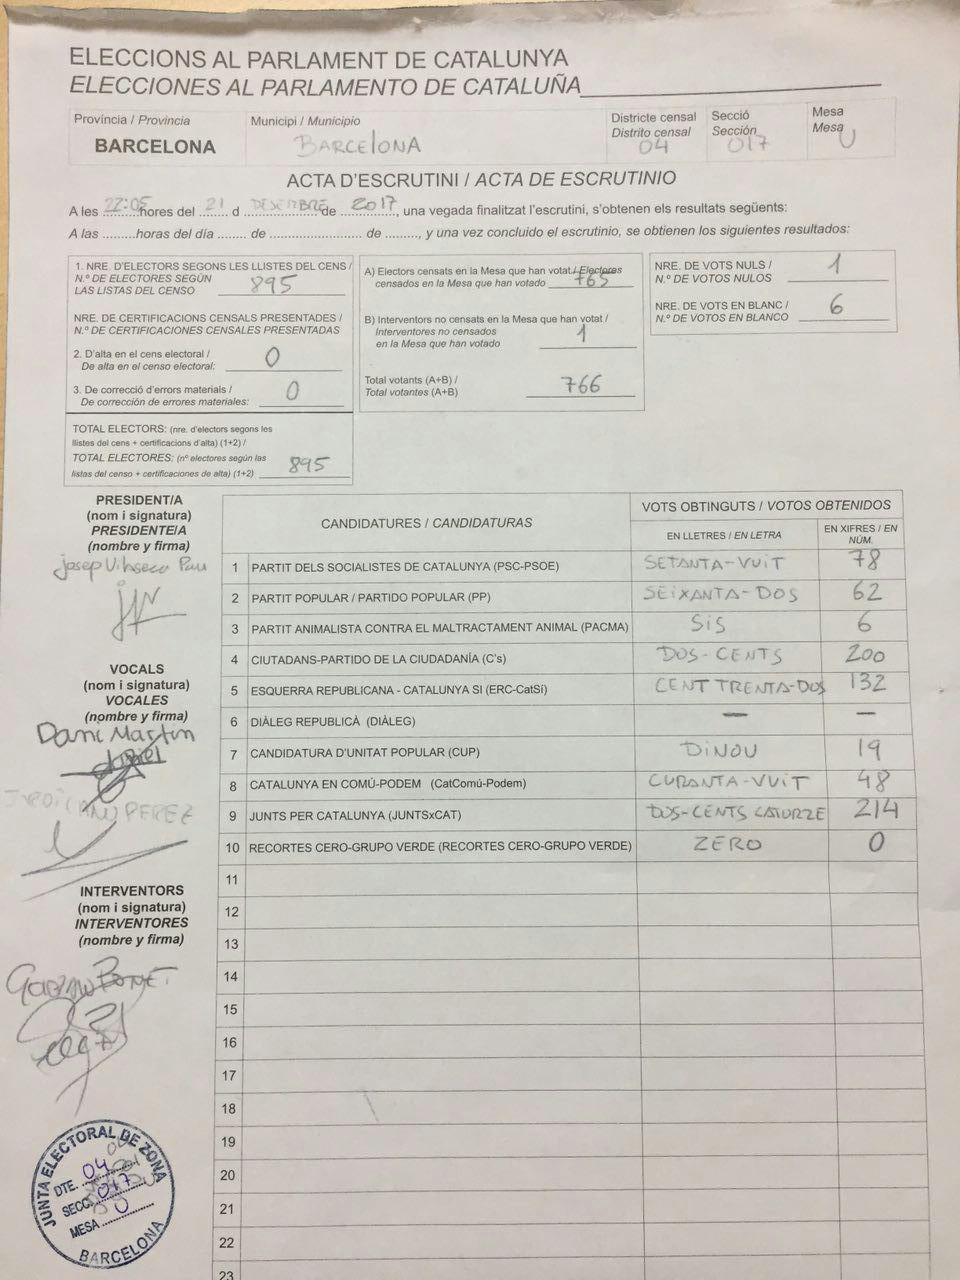 ELECCIONS AL PARLAMENT DE CATALUNYA
ELECCIONES AL PARLAMENTO DE CATALUÑA
Província / Provincia
BARCELONA
Municipi / Municipio
BARCELONA
Districte censal
Distrito censal
04
Secció
Sección
017
Mesa
Mesa
U
ACTA D'ESCRUTINI / ACTA DE ESCRUTINIO
A les 22:05 hores del 21 d DESEMBRE de 2017, una vegada finalitzat l'escrutini, s'obtenen els resultats següents:
A las .........horas del día ........ de ........................ de ........, y una vez concluido el escrutinio, se obtienen los siguientes resultados:
1. NRE. D'ELECTORS SEGONS LES LLISTES DEL CENS /
N.º DE ELECTORES SEGÚN
LAS LISTAS DEL CENSO 895
NRE. DE CERTIFICACIONS CENSALS PRESENTADES /
N.º DE CERTIFICACIONES CENSALES PRESENTADAS
2. D'alta en el cens electoral /
De alta en el censo electoral: 0
3. De correcció d'errors materials /
De corrección de errores materiales: 0
TOTAL ELECTORS: (nre. d'electors segons les
llistes del cens + certificacions d'alta) (1+2) /
TOTAL ELECTORES: (nº electores según las
listas del censo + certificaciones de alta) (1+2) 895
A) Electors censats en la Mesa que han votat / Electores
censados en la Mesa que han votado 765
B) Interventors no censats en la Mesa que han votat /
Interventores no censados
en la Mesa que han votado 1
Total votants (A+B) /
Total votantes (A+B) 766
NRE. DE VOTS NULS /
N.º DE VOTOS NULOS 1
NRE. DE VOTS EN BLANC /
N.º DE VOTOS EN BLANCO 6
PRESIDENT/A
(nom i signatura)
PRESIDENTE/A
(nombre y firma)
Josep
VOCALS
(nom i signatura)
VOCALES
(nombre y firma)
Dani Martin
PEREZ
INTERVENTORS
(nom i signatura)
INTERVENTORES
(nombre y firma)
CANDIDATURES / CANDIDATURAS
VOTS OBTINGUTS / VOTOS OBTENIDOS
EN LLETRES / EN LETRA
EN XIFRES / EN NÚM.
1 PARTIT DELS SOCIALISTES DE CATALUNYA (PSC-PSOE) SETANTA-VUIT 78
2 PARTIT POPULAR / PARTIDO POPULAR (PP) SEIXANTA-DOS 62
3 PARTIT ANIMALISTA CONTRA EL MALTRACTAMENT ANIMAL (PACMA) SIS 6
4 CIUTADANS-PARTIDO DE LA CIUDADANÍA (C's) DOS-CENTS 200
5 ESQUERRA REPUBLICANA - CATALUNYA SI (ERC-CatSí) CENT TRENTA-DOS 132
6 DIÀLEG REPUBLICÀ (DIÀLEG) — —
7 CANDIDATURA D'UNITAT POPULAR (CUP) DINOU 19
8 CATALUNYA EN COMÚ-PODEM (CatComú-Podem) CURANTA-VUIT 48
9 JUNTS PER CATALUNYA (JUNTSxCAT) DOS-CENTS CATORZE 214
10 RECORTES CERO-GRUPO VERDE (RECORTES CERO-GRUPO VERDE) ZERO 0
11
12
13
14
15
16
17
18
19
20
21
22
23
JUNTA ELECTORAL DE ZONA
DTE. 04
SECC. 017
MESA U
BARCELONA